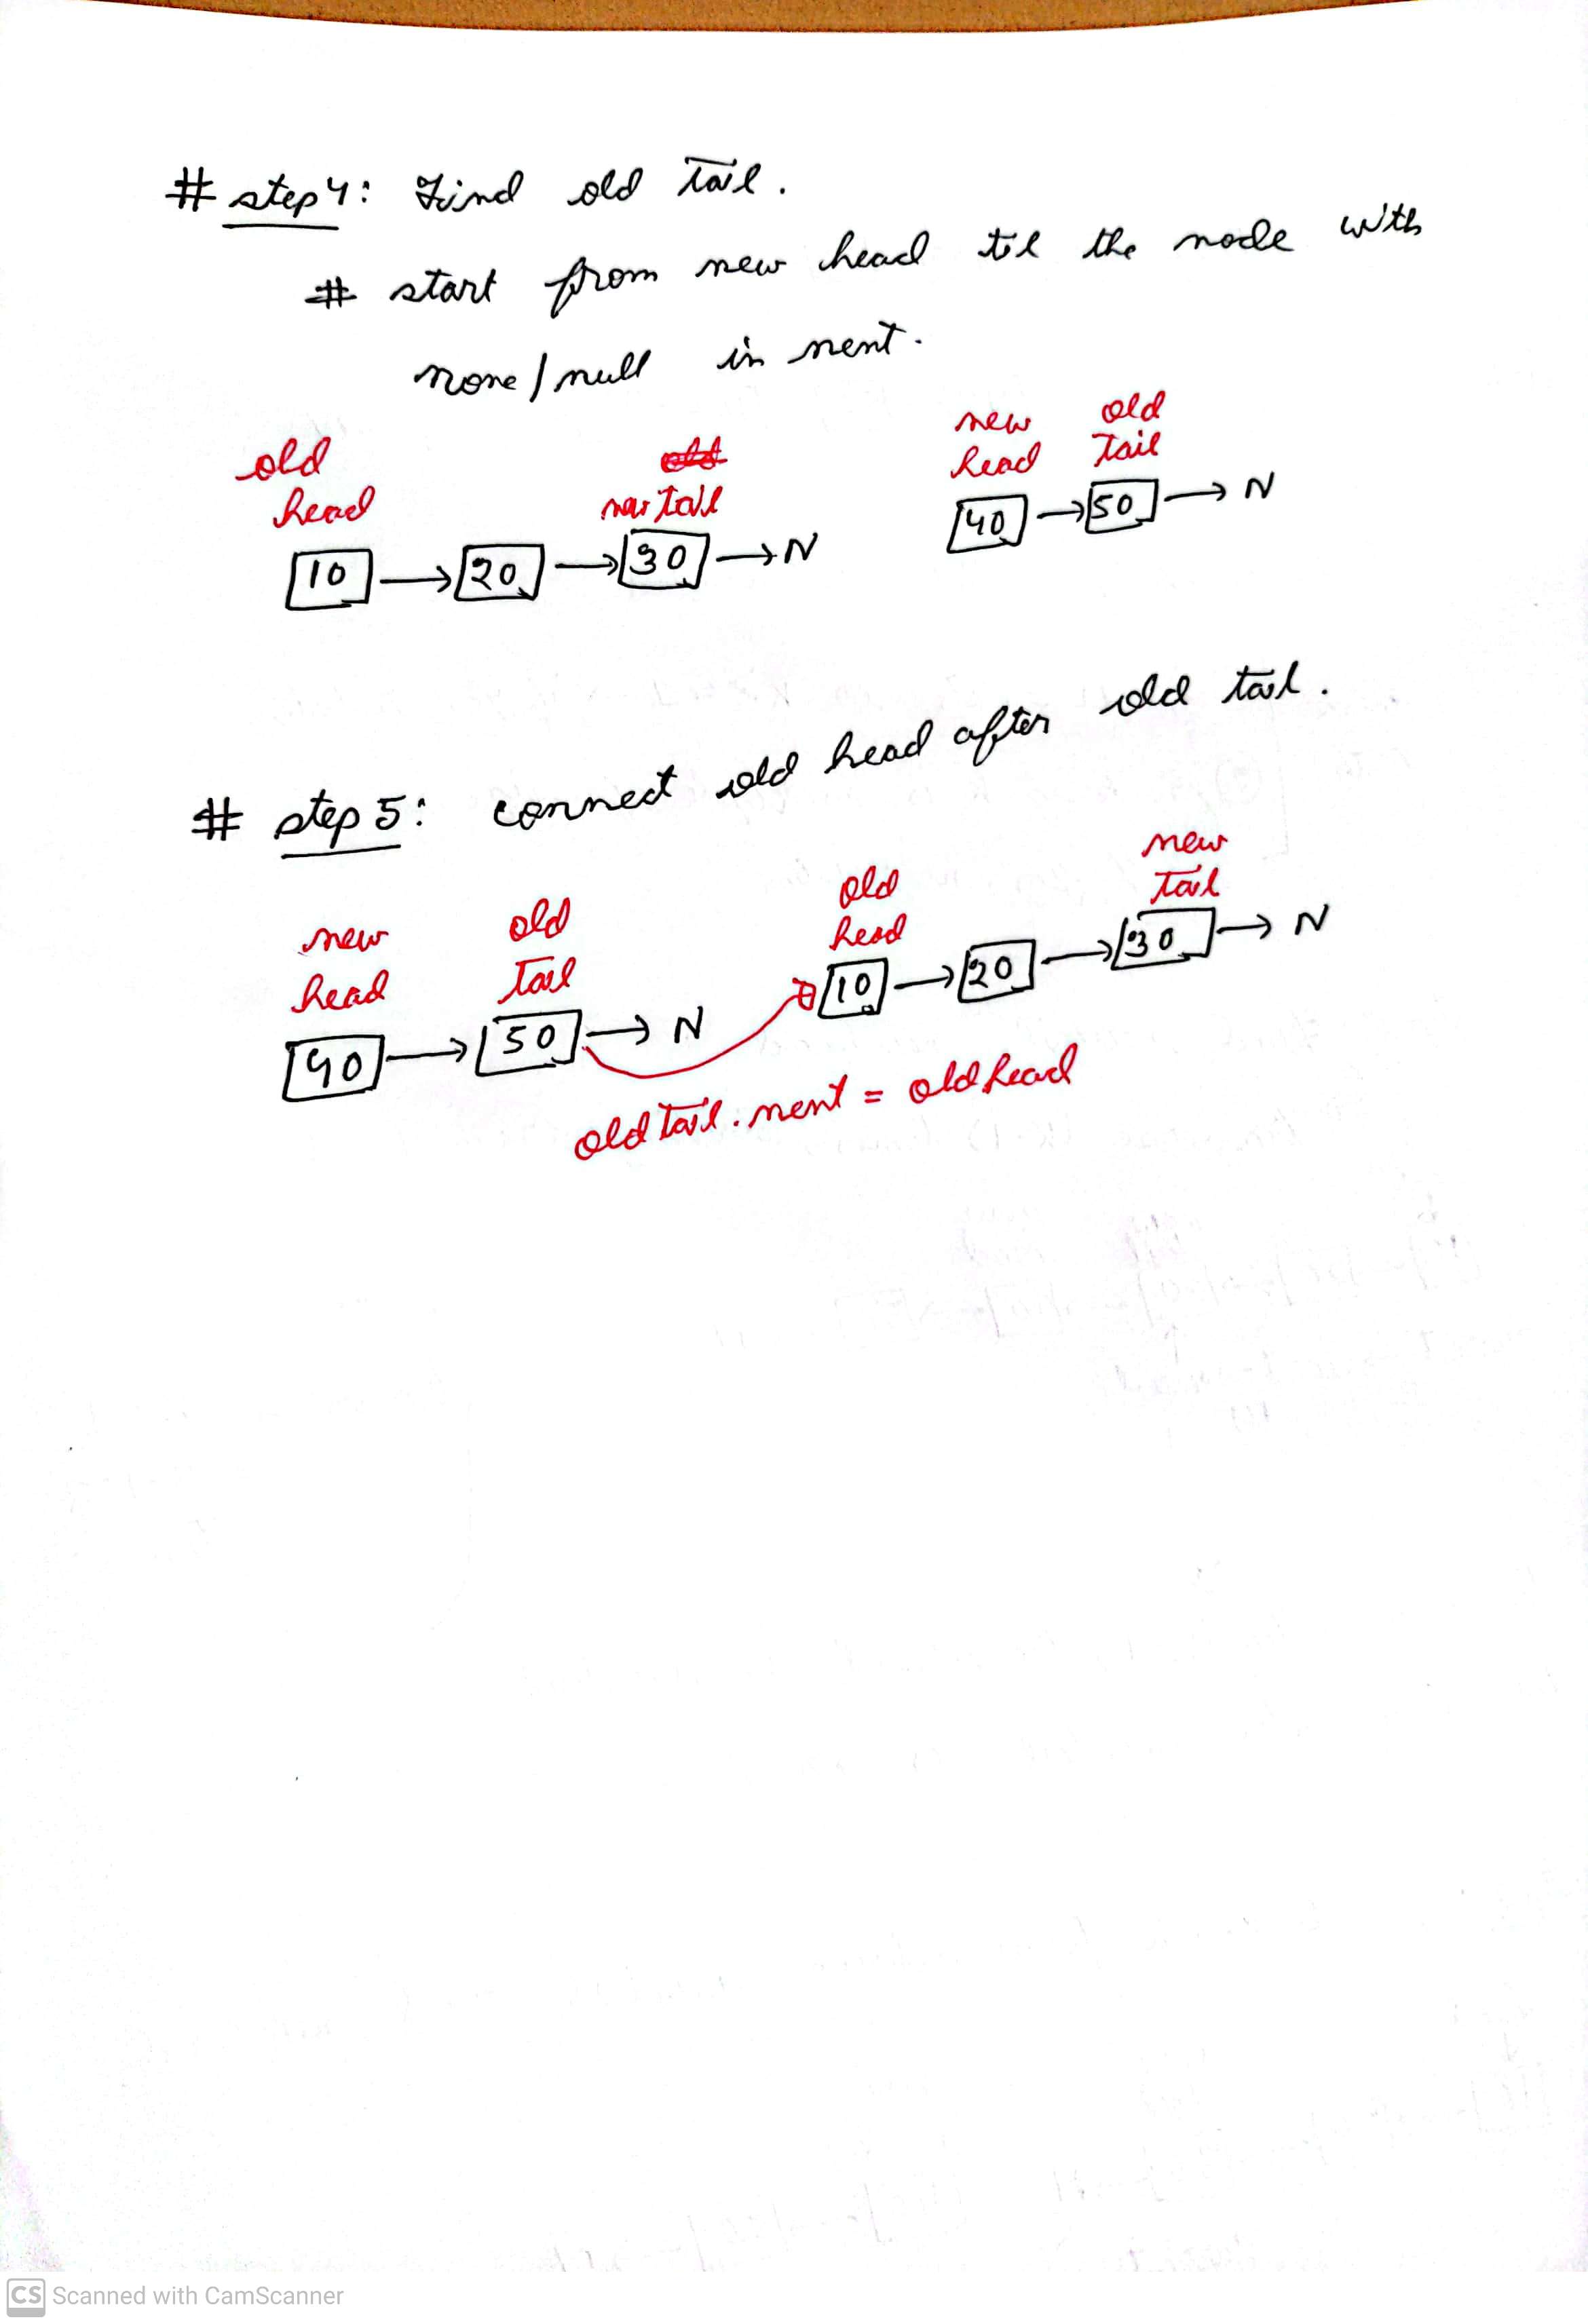 # step 4: Find old tail.
# start from new head til the node with
none / null in next.
old head
old
new tail
new head
old tail
10 → 20 → 30 → N
40 → 50 → N
# step 5: connect old head after old tail.
new head
old tail
old head
new tail
40 → 50 → N
10 → 20 → 30 → N
old tail.next = old head
CS Scanned with CamScanner